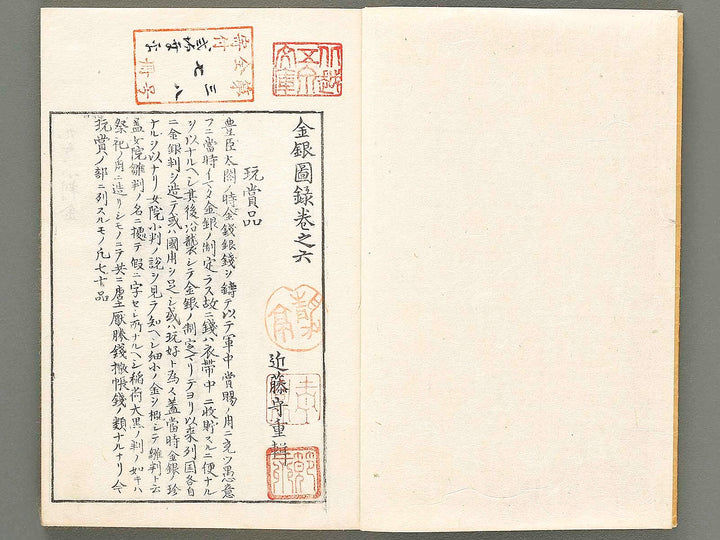 金銀圖錄卷之六
近藤守重輯
玩賞品
豊臣太閤ノ時金錢銀錢ヲ鑄テ以テ軍中賞賜ノ用ニ充ツ愚意
フニ當時イマタ金銀ノ制定ラス故ニ錢ハ衣帶中ニ收貯スルニ便ナル
ヲ以ナルヘシ其後沿襲シテ金銀ノ制定マリテヨリ以來列国各自
ニ金銀判ヲ造テ或ハ國用ヲ足シ或ハ玩好ト為ス蓋當時金銀ノ珍
ナルヲ以ナリ女院小判ノ說ヲ見テ知ヘシ細小ノ金ヲ 雛判ト云
蓋女院雛判ノ名ニ據テ假ニ字セシ所ナルヘシ稲荷大黒ノ判ノ如キハ
祭祀ノ用ニ造リシモノニテ共ニ唐土厭勝錢撒帳錢ノ類ナルナリ今
玩賞ノ部ニ列スルモノ凡七十品